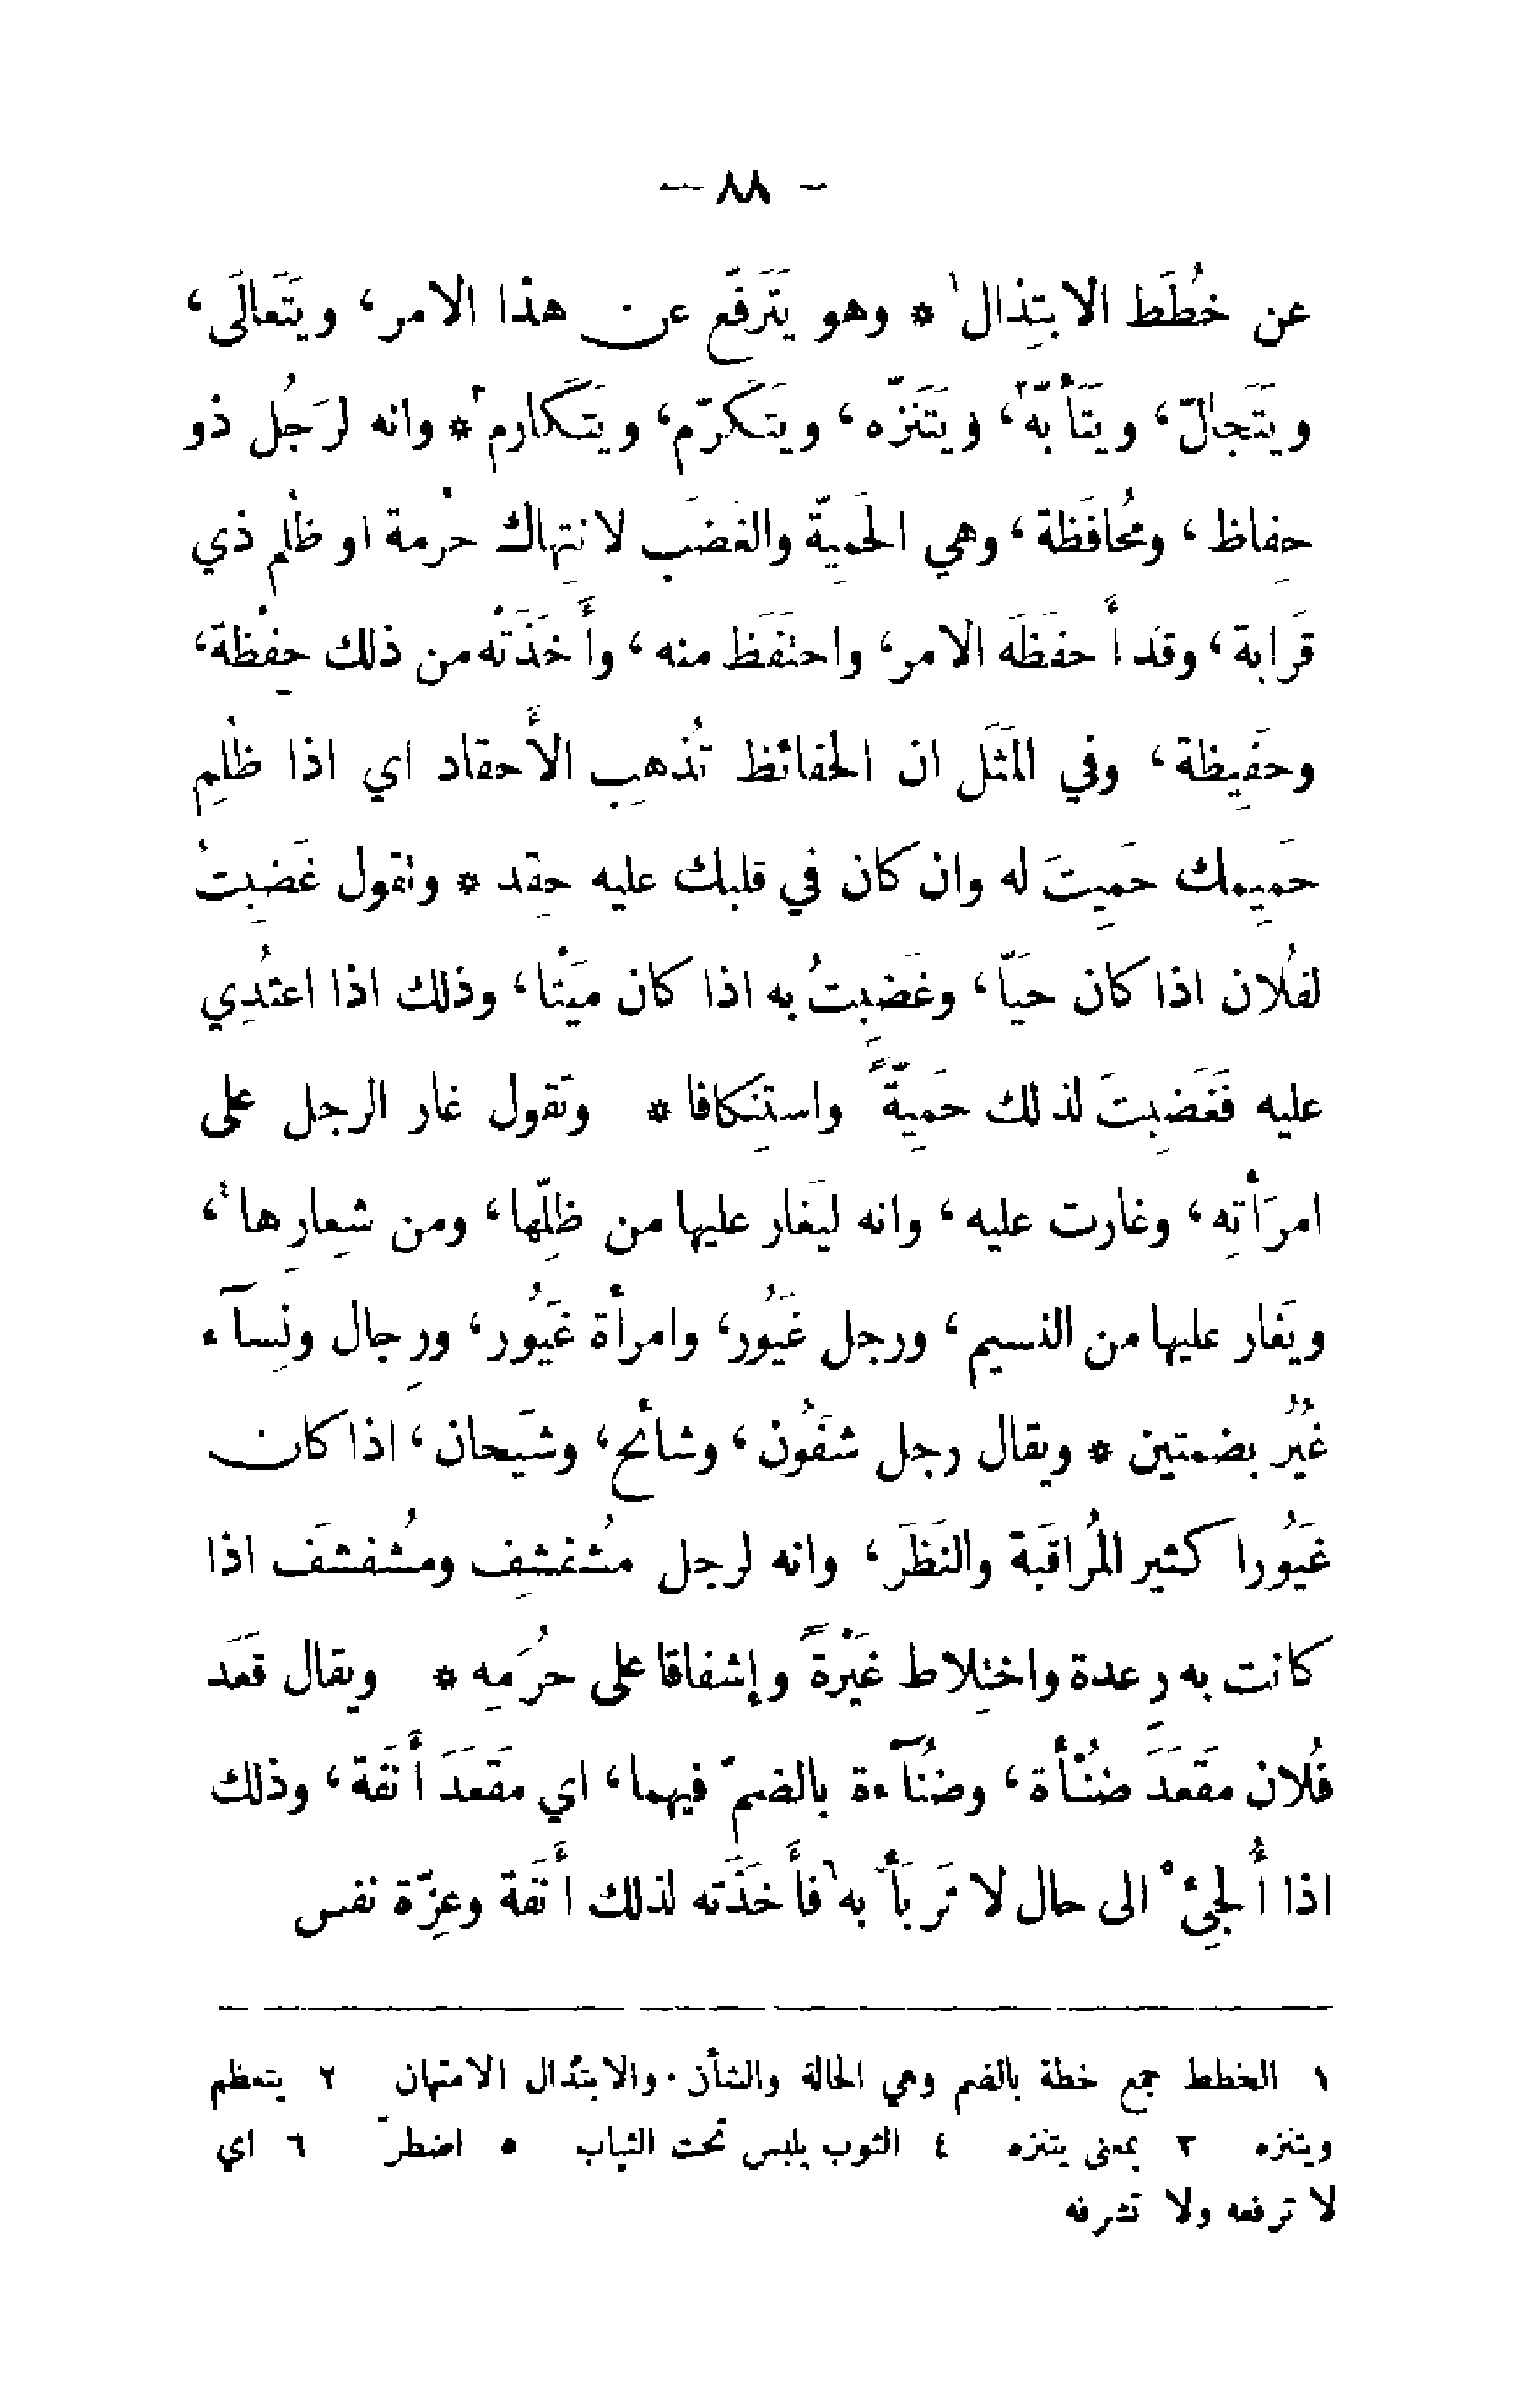 — ٨٨ —
عن خُطَط الابتِذال١ * وهو يَتَرفَّع عن هذا الامر، ويَتَعالَى،
ويَتَجالّ، ويَتَأَبَّه٢، ويَتَنَزّه، ويَتكَرّم، ويَتَكارم٣ * وانه لرَجُل ذو
حِفاظ، ومُحافَظة، وهي الحَمِيّة والغَضَب لانتِهاك حُرْمة او ظُلْم ذي
قَرابة، وقد أَحفَظَه الامر، واحتَفَظ منه، وأَخَذَتْه من ذلك حِفْظة،
وحَفِيظة، وفي المَثَل ان الحفائظ تُذهِب الأَحقاد اي اذا ظُلِم
حَمِيمك حَمِيتَ له وان كان في قلبك عليه حِقد * وتقول غَضِبتُ
لفُلان اذا كان حَيّاً، وغَضِبتُ به اذا كان مَيْتا، وذلك اذا اعتُدِي
عليه فَغَضِبتَ لذلك حَمِيّةً واستِنكافا * وتَقول غار الرجل على
امرَأْتِه، وغارت عليه، وانه ليَغار عليها من ظِلّها، ومن شِعارِها٤،
ويَغار عليها من النسيم، ورجل غَيُور، وامرأة غَيُور، ورِجال ونِسآء
غُيُر بضمتين * ويقال رجل شَفُون، وشائح، وشَيحان، اذا كان
غَيُورا كثير المُراقَبة والنَظَر، وانه لرجل مُشَفشِف ومُشَفشَف اذا
كانت به رِعدة واختِلاط غَيْرةً وإشفاقا على حُرَمِه * ويقال قَعَد
فُلان مَقعَدَ ضُنْأة، وضُنآءة بالضمّ فيهما، اي مَقعَدَ أَنَفة، وذلك
اذا أُلجِئ٥ الى حال لا تَربَأ به٦ فأَخَذَته لذلك أَنَفة وعِزّة نفس
١ الخطط جمع خطة بالضم وهي الحالة والشأن. والابتذال الامتهان ٢ يتعظم
ويتنزه ٣ بمعنى يتنزه ٤ الثوب يلبس تحت الثياب ٥ اضطرّ ٦ اي
لا ترفعه ولا تشرفه